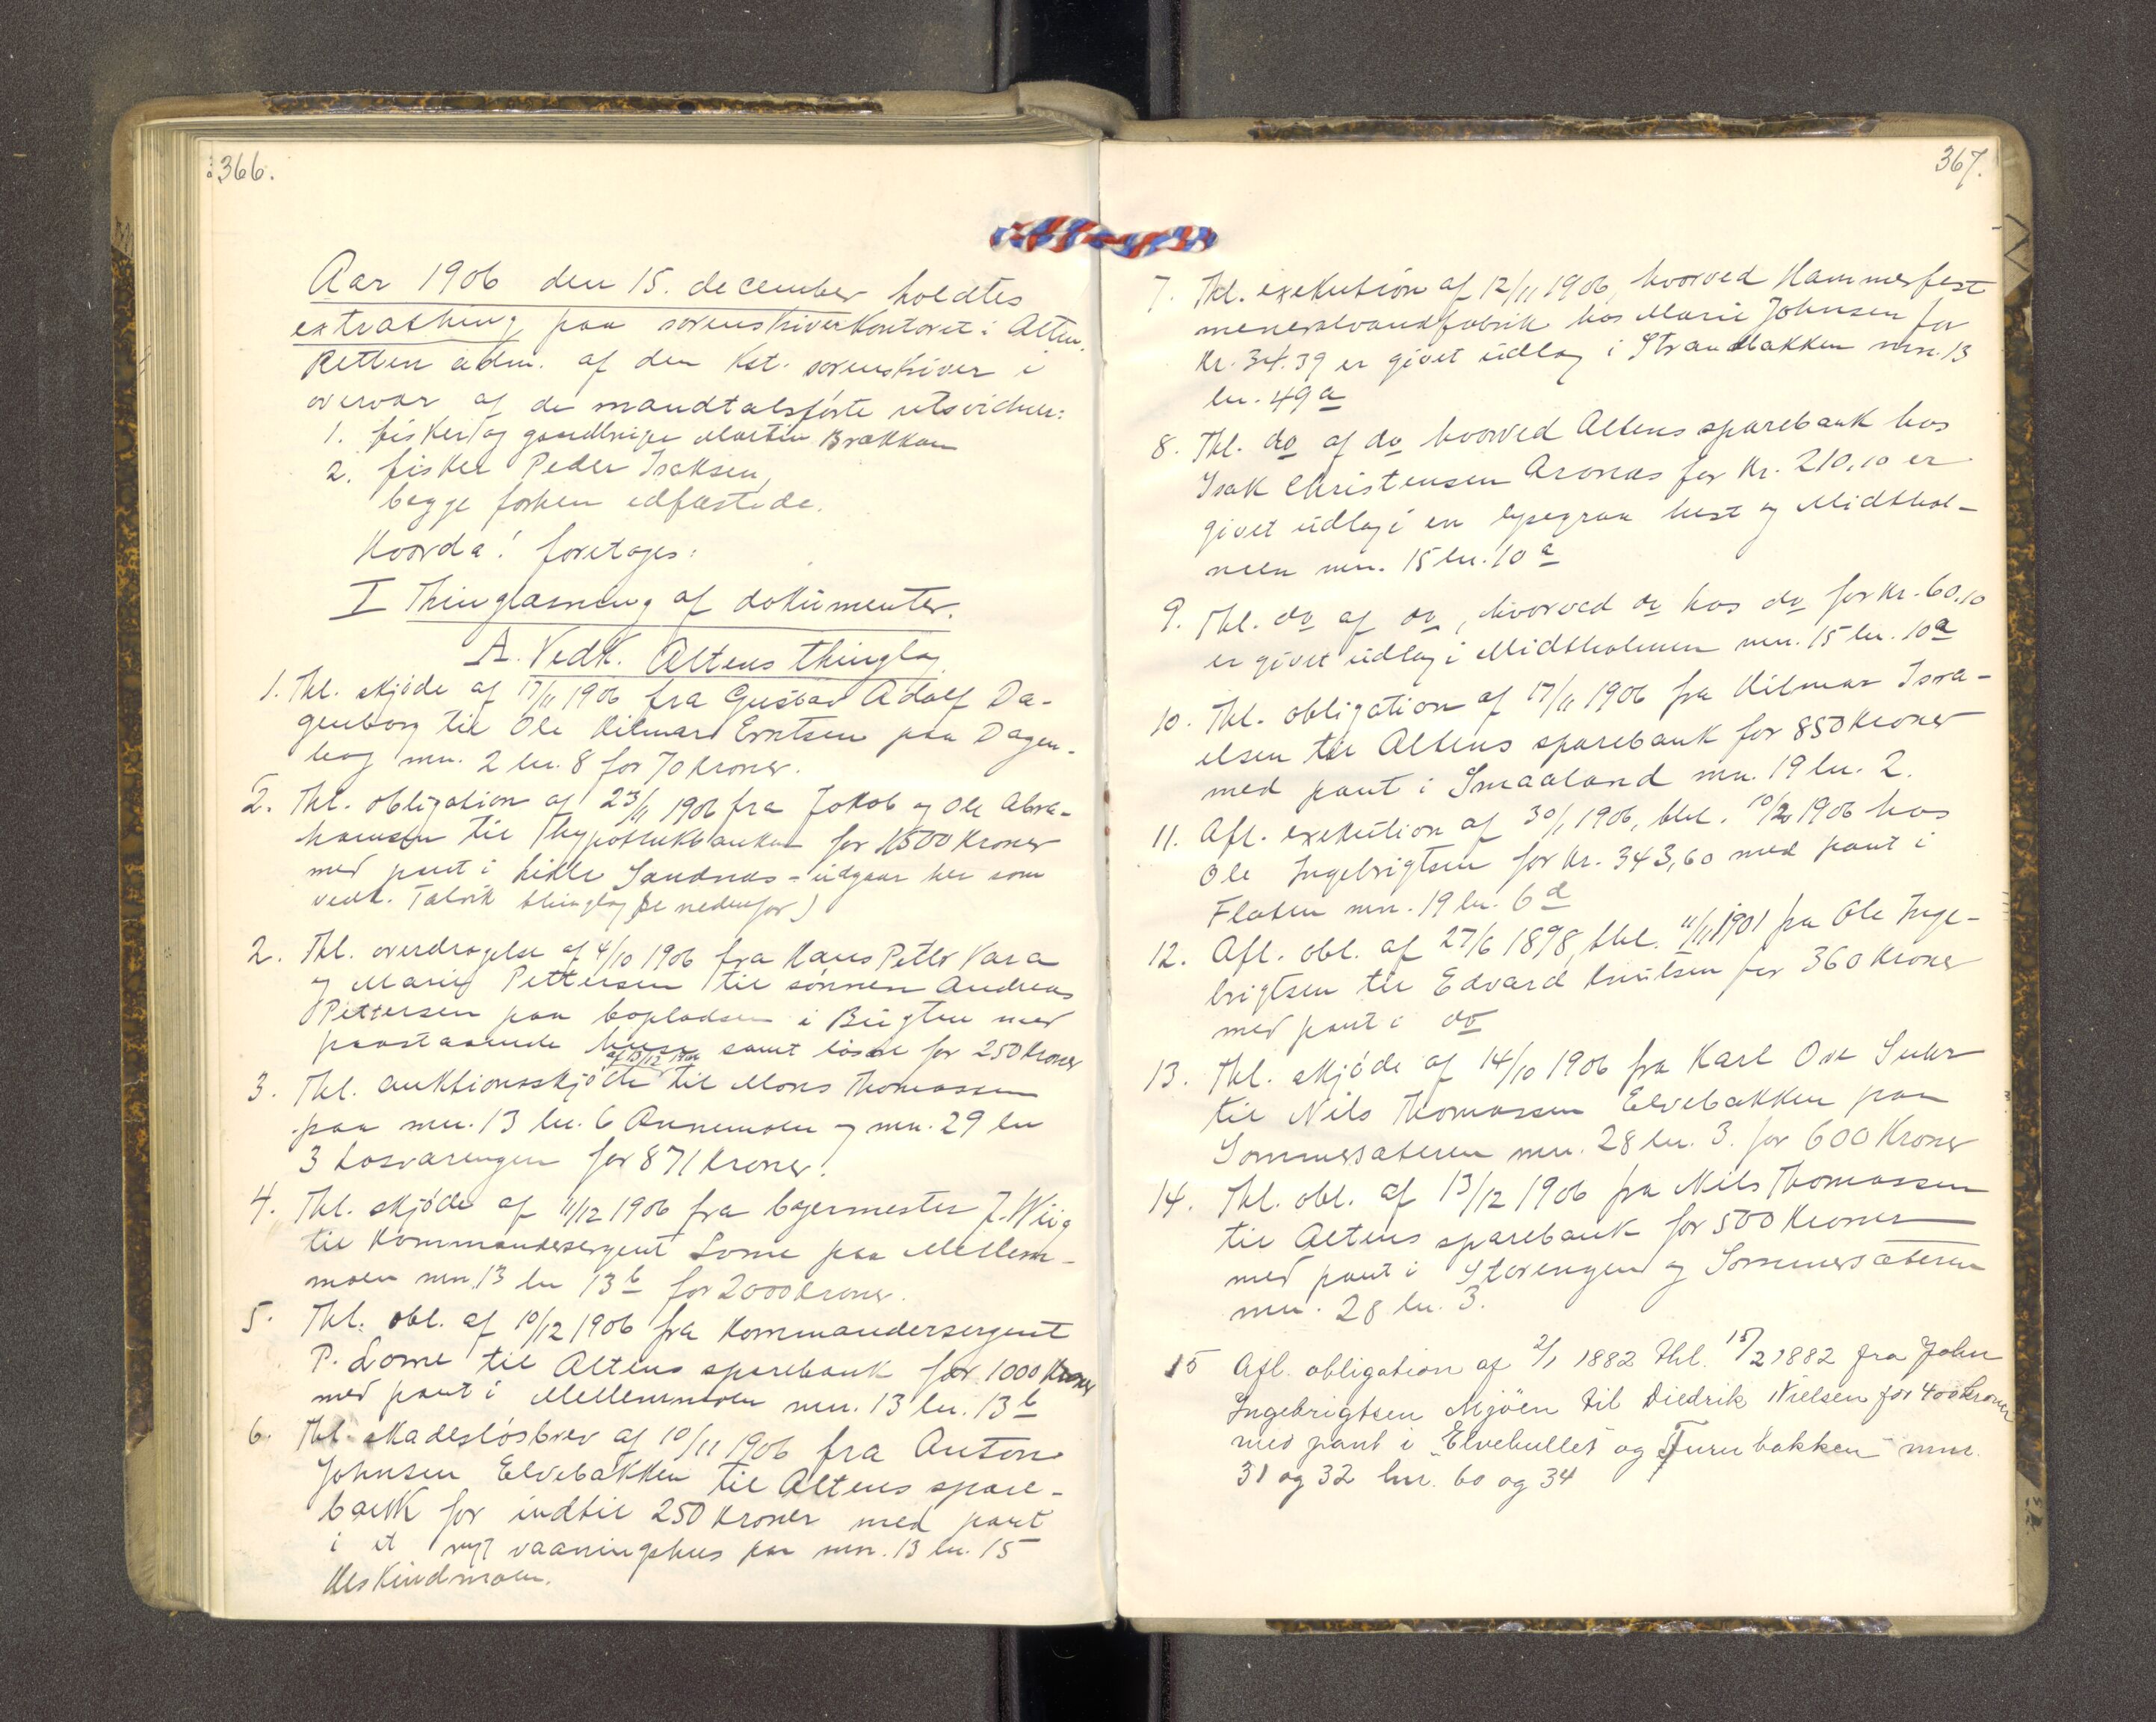 366.
Aar 1906 den 15. december holdtes
extrathing paa sorenskriverkontoret i Alten.
Retten adm. af den kst. sorenskriver i
overvær af de mandtalsførte retsvidner:
1. fisker og gaardbruger Morten Brækkan
2. fisker Peder Isaksen,
begge forhen edfæstede.
Hvorda! foretoges:
I Thinglæsning af dokumenter.
A. Vedk. Altens thinglag
1. Thl. skjøde af 17/11 1906 fra Gustav Adolf Da-
genborg til Ole Hilmar Erntsen paa Dagen-
haug mn. 2 ln. 8 for 70 kroner.
2. Thl. obligation af 23/11 1906 fra Jakob og Ole Abra-
hamsen til hypothekbanken for 1500 kroner
med pant i Lille Sandnæs - udgaar her som
vedk. Talvik thinglag (se nedenfor)
2. Thl. overdragelse af 4/10 1906 fra Hans Petter Vara
og Marie Pettersen til sønnen Andreas
Pettersen paa bopladsen i Bugten med
paastaaende huse samt løsøre for 250 kroner
3. Thl. auktionsskjøde af 13/12 1906 til Mons Thomassen
paa mn. 13 ln. 6 Annemoen og mn. 29 ln
3 Losvarengen for 871 kroner.
4. Thl. skjøde af 11/12 1906 fra bygermester J. Wiig
til kommandersergent Lome paa Mellem-
moen mn. 13 ln 13 b for 2000 kroner.
5. Thl. obl. af 10/12 1906 fra kommandersergent
P. Lome til Altens sparebank for 1000 kroner
med pant i Mellemmoen mn. 13 ln. 13 b
6. Thl. skadesløsbrev af 10/11 1906 fra Anton
Johnsen Elvebakken til Altens spare-
bank for indtil 250 kroner med pant
i et nyt vaaningshus paa mn. 13 ln. 15
367.
7. Thl. exekution af 12/11 1906, hvorved Hammerfest
meneralvandfabrik hos Marie Johnsen for
kr. 34.39 er givet udlæg i Strandbakken mn. 13
ln. 49 a
8. Thl. do af do hvorved Altens sparebank hos
Isak Christensen Aronæs for kr. 210,10 er
givet udlæg i en lysegraa hest og Midthol-
men mn. 15 ln. 10 a
9. Thl. do af do, hvorved do hos do for kr. 60,10
er givet udlæg i Midtholmen mn. 15 ln. 10 a
10. Thl. obligation af 17/11 1906 fra Hilmar Isra-
elsen til Altens sparebank for 850 kroner
med pant i Smaaland mn. 19 ln. 2.
11. Afl. exekution af 30/1 1906, thl. 10/2 1906 hos
Ole Ingebrigtsen for kr. 343,60 med pant i
Flaten mn. 19 ln. 6 d
12. Afl. obl. af 27/6 1898, thl. 11/11 1901 fra Ole Inge-
brigtsen til Edvard Knutsen for 360 kroner
med pant i do
13. Thl. skjøde af 14/10 1906 fra Karl Ove Suhr
til Nils Thomassen Elvebakken paa
Sommersæteren mn. 28 ln. 3. for 600 kroner
14. Thl. obl. af 13/12 1906 fra Nils Thomassen
til Altens sparebank for 500 kroner
med pant i Storengen og Sommersæteren
mn. 28 ln. 3.
15 Afl. obligation af 2/1 1882 thl. 15/2 1882 fra John
Ingebrigtsen Mjøen til Diedrik Nielsen for 400 kroner
med pant i "Elvehullet" og Furubakken mnr.
31 og 32 lnr. 60 og 34